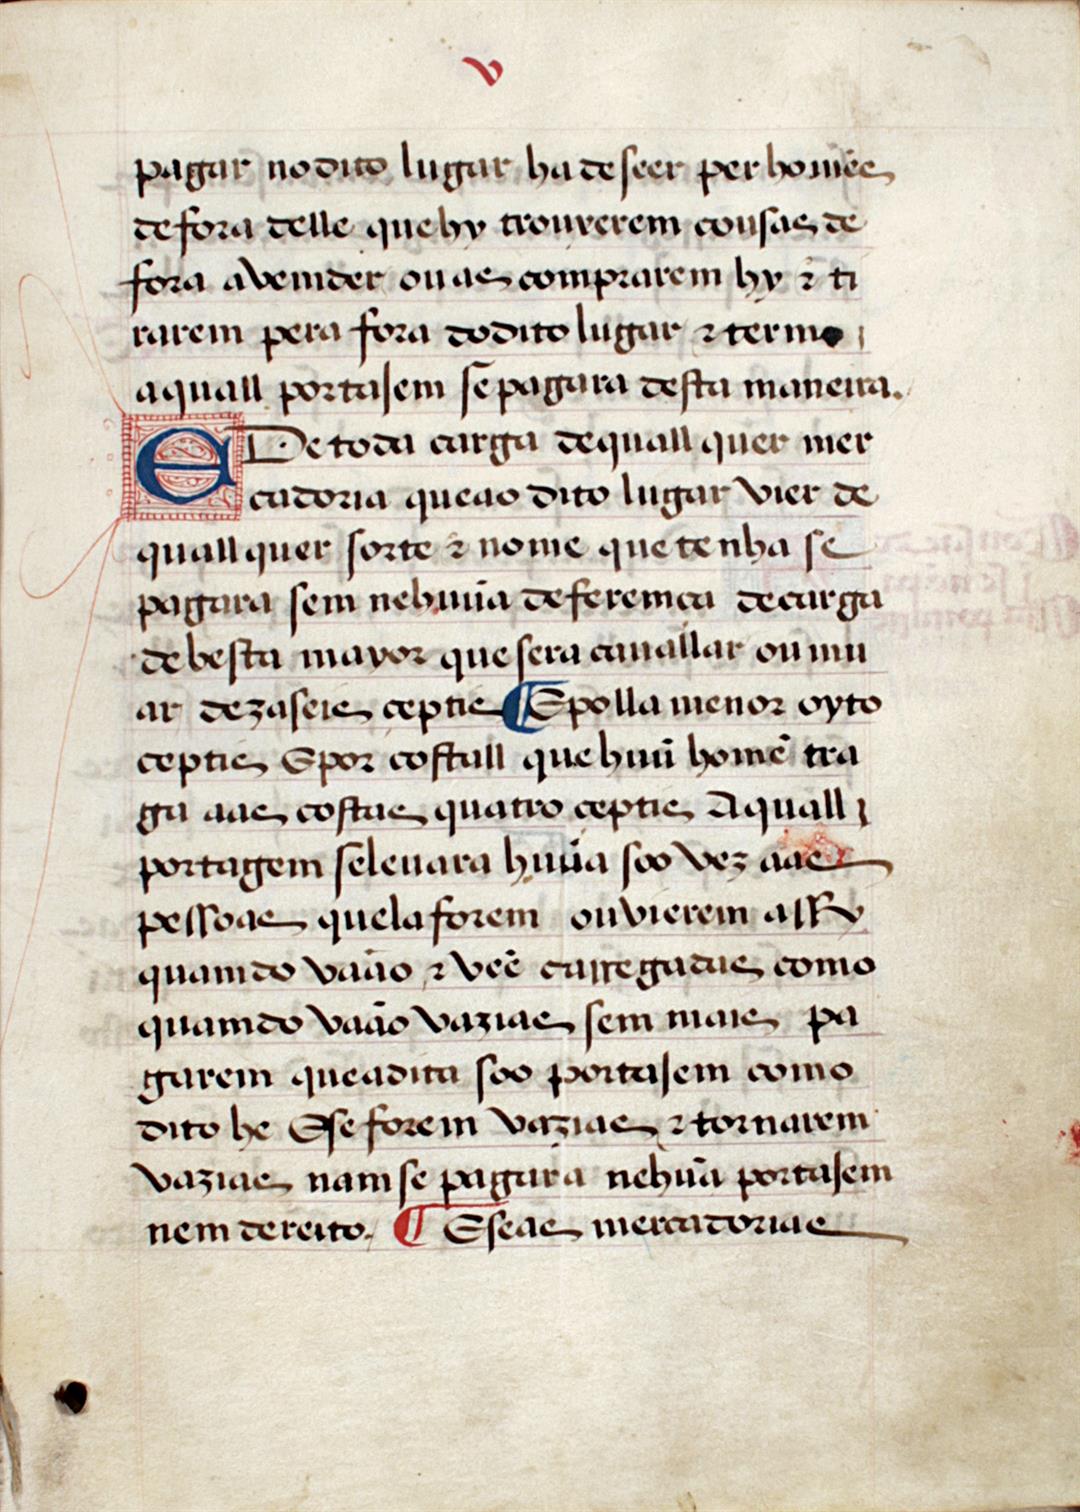 v
pagar no dito lugar ha de seer per homẽes
de fora delle que hy trouverem cousas de
fora a vemder ou as comprarem hy ⁊ ti
rarem pera fora do dito lugar ⁊ termo
a quall portajem sẽ pagara desta maneira.
E De toda carga de quall quer mer
cadoria que ao dito lugar vier de
quall quer sorte ⁊ nome que tenha se
pagara sem nehuũa deferemça de carga
de besta mayor que sera cavallar ou mu
ar dezaseis ceptis ¶ E polla menor oyto
ceptis E por costall que huũ homẽ tra
ga aas costas quatro ceptis A quall
portagem se levara huũa soo vez aas
pessoas que la forem ou vierem assy
quamdo vaão ⁊ veẽ carregadas como
quamdo vaão vazias sem mais pa
garem que a dita soo portajem como
dito he E se forem vazias ⁊ tornarem
vazias nam se pagara nehuã portajem
nem dereito. ¶ E se as mercadorias